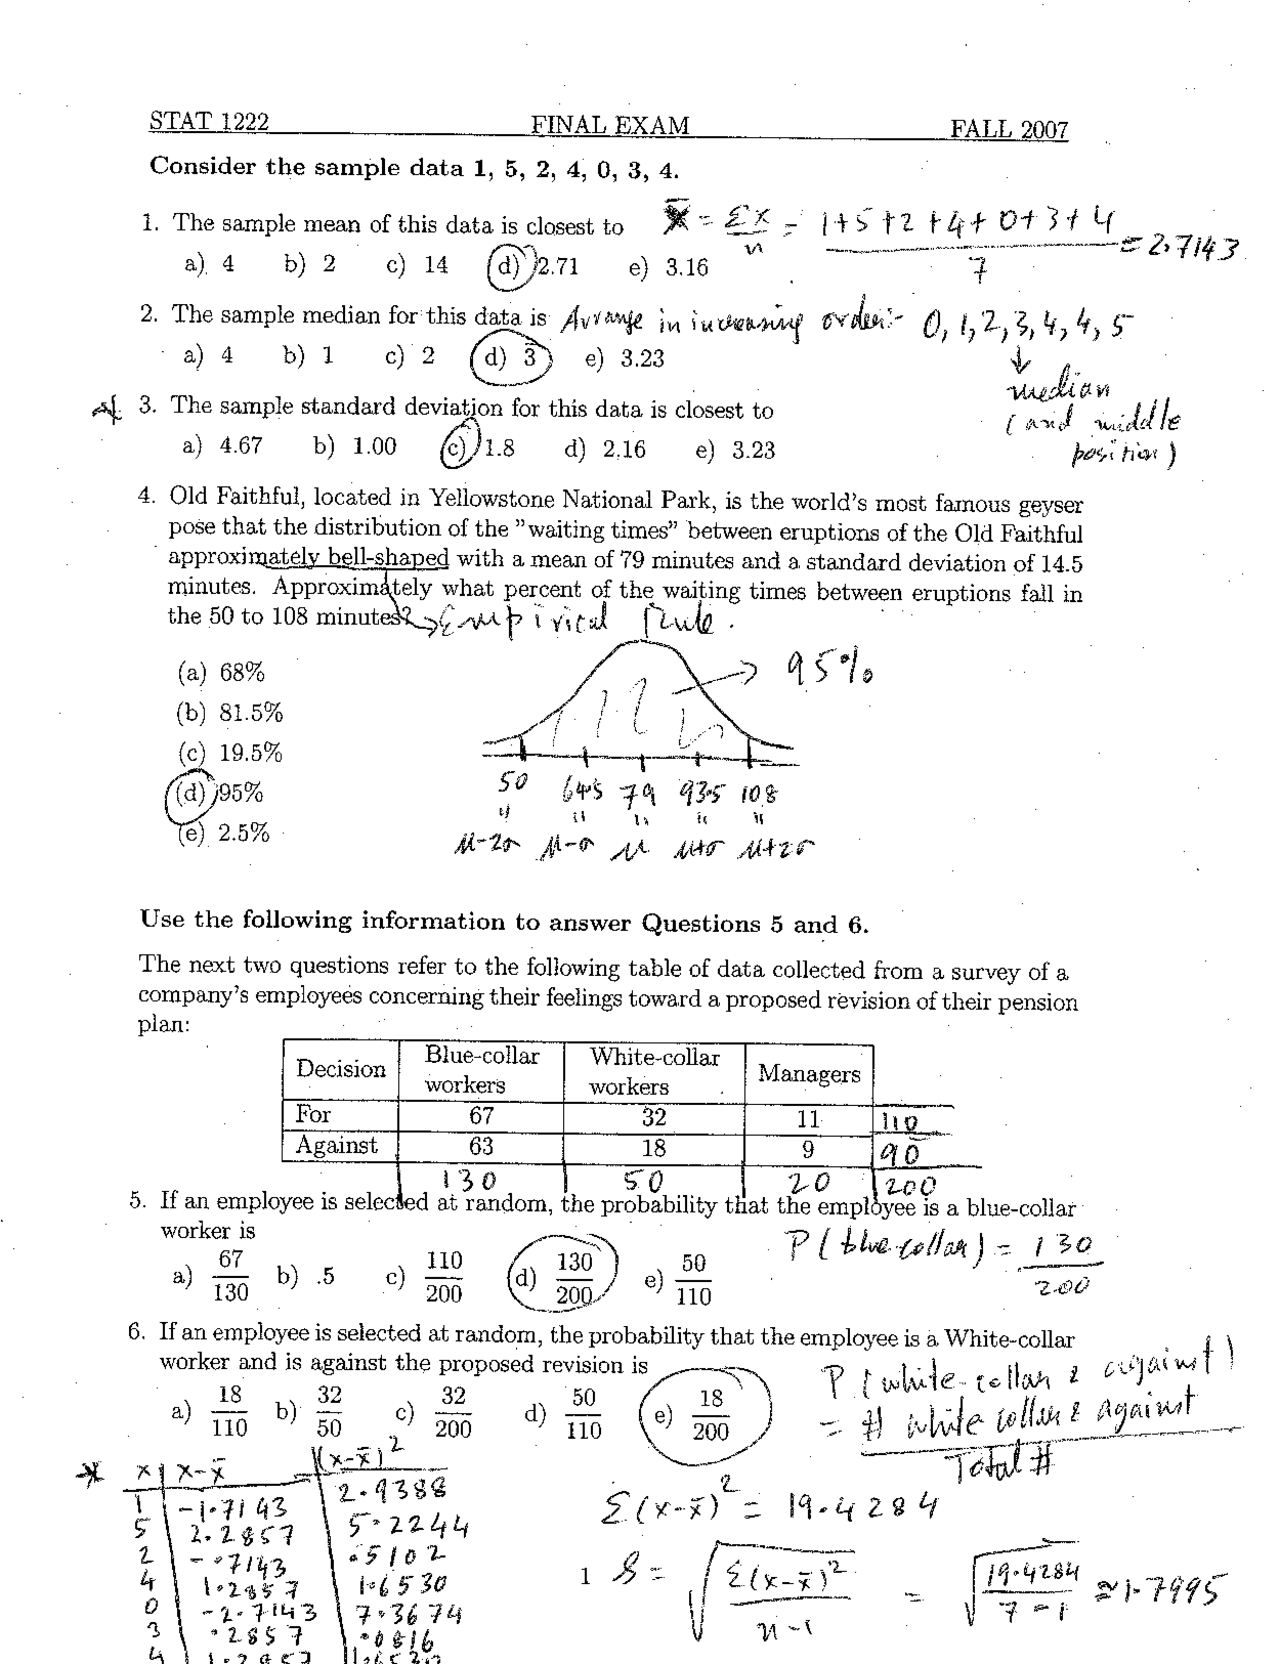 STAT 1222 FINAL EXAM FALL 2007
Consider the sample data 1, 5, 2, 4, 0, 3, 4.
1. The sample mean of this data is closest to x̄ = Σx/n = (1+5+2+4+0+3+4)/7 = 2.7143
a) 4 b) 2 c) 14 d) 2.71 e) 3.16
2. The sample median for this data is Arrange in increasing order:- 0, 1, 2, 3, 4, 4, 5
a) 4 b) 1 c) 2 d) 3 e) 3.23
↓
median
(and middle
position)
3. The sample standard deviation for this data is closest to
a) 4.67 b) 1.00 c) 1.8 d) 2.16 e) 3.23
4. Old Faithful, located in Yellowstone National Park, is the world's most famous geyser
pose that the distribution of the "waiting times" between eruptions of the Old Faithful
approximately bell-shaped with a mean of 79 minutes and a standard deviation of 14.5
minutes. Approximately what percent of the waiting times between eruptions fall in
the 50 to 108 minutes? → Empirical Rule.
95%
(a) 68%
(b) 81.5%
(c) 19.5%
(d) 95%
(e) 2.5%
50 64.5 79 93.5 108
μ-2σ μ-σ μ μ+σ μ+2σ
Use the following information to answer Questions 5 and 6.
The next two questions refer to the following table of data collected from a survey of a
company's employees concerning their feelings toward a proposed revision of their pension
plan:
Decision Blue-collar workers White-collar workers Managers
For 67 32 11 110
Against 63 18 9 90
130 50 20 200
5. If an employee is selected at random, the probability that the employee is a blue-collar
worker is P(blue-collar) = 130/200
a) 67/130 b) .5 c) 110/200 d) 130/200 e) 50/110
6. If an employee is selected at random, the probability that the employee is a White-collar
worker and is against the proposed revision is
a) 18/110 b) 32/50 c) 32/200 d) 50/110 e) 18/200
P(white-collar & against)
= # white collar & against
Total #
* x x-x̄ (x-x̄)²
1 -1.7143 2.9388
5 2.2857 5.2244
2 -.7143 .5102
4 1.2857 1.6530
0 -2.7143 7.3674
3 .2857 .0816
4 1.2857 1.6530
Σ(x-x̄)² = 19.4284
1
S = √(Σ(x-x̄)²/(n-1)) = √(19.4284/(7-1)) ≈ 1.7995